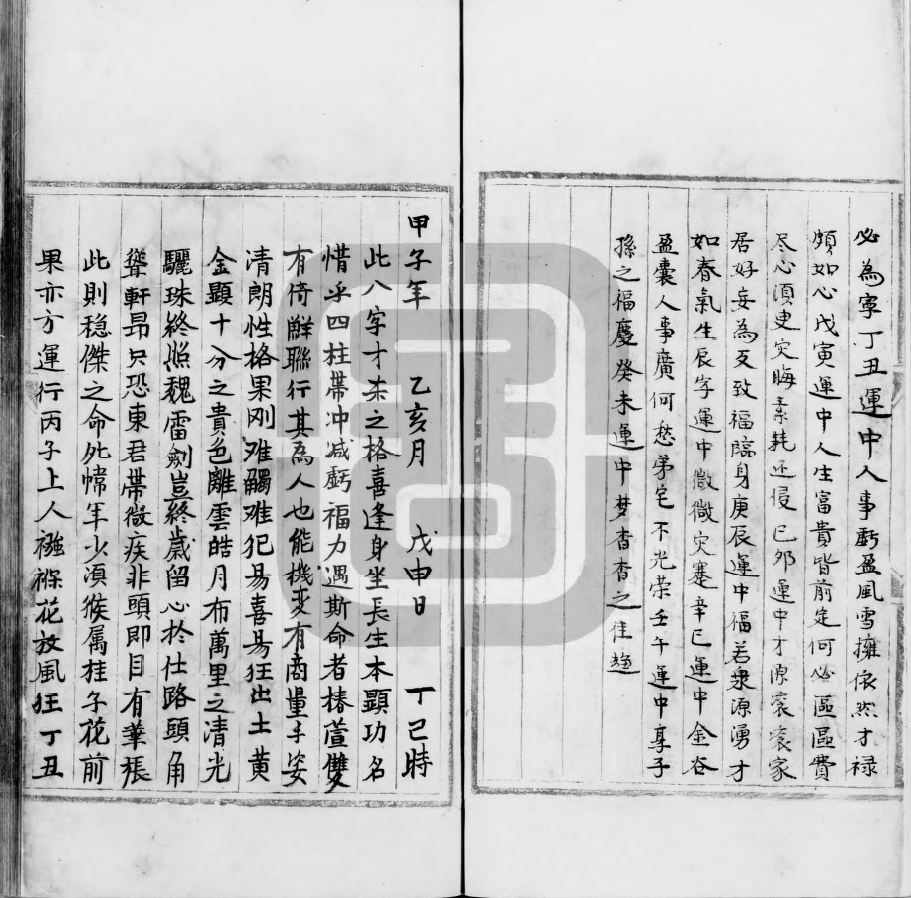 必為寧丁丑運中人事虧盈風雪擁依然才禄
頗如心戊寅運中人生富貴皆前定何必區區費
尽心須史灾晦素耗还侵己夘運中才源衮衮家
居好妄為支致福臨身庚辰運中福若衆源湧才
如春氣生辰字運中微微灾蹇辛巳運中金谷
盈囊人事廣何愁苐宅不光荣壬午運中享子
孫之福慶癸未運中梦杳杳之佳趂
甲子年 乙亥月 戊申日 丁巳時
此八字才杀之格喜逢身坐長生本顯功名
惜乎四柱帶冲减虧福力遇斯命者椿萱雙
有倚鮮聯行其為人也能機変有啇量丰姿
清朗性格果刚难觸难犯易喜易狂出土黄
金顯十分之貴色離雲皓月布萬里之清光
驪珠終照魏雷劍豈終歲留心扵仕路頭角
聳軒昂只恐東君帶微疾非頭即目有華振
此則穏傑之命死幃年少須候属桂子花前
果亦方運行丙子上人襁褓花放風狂丁丑